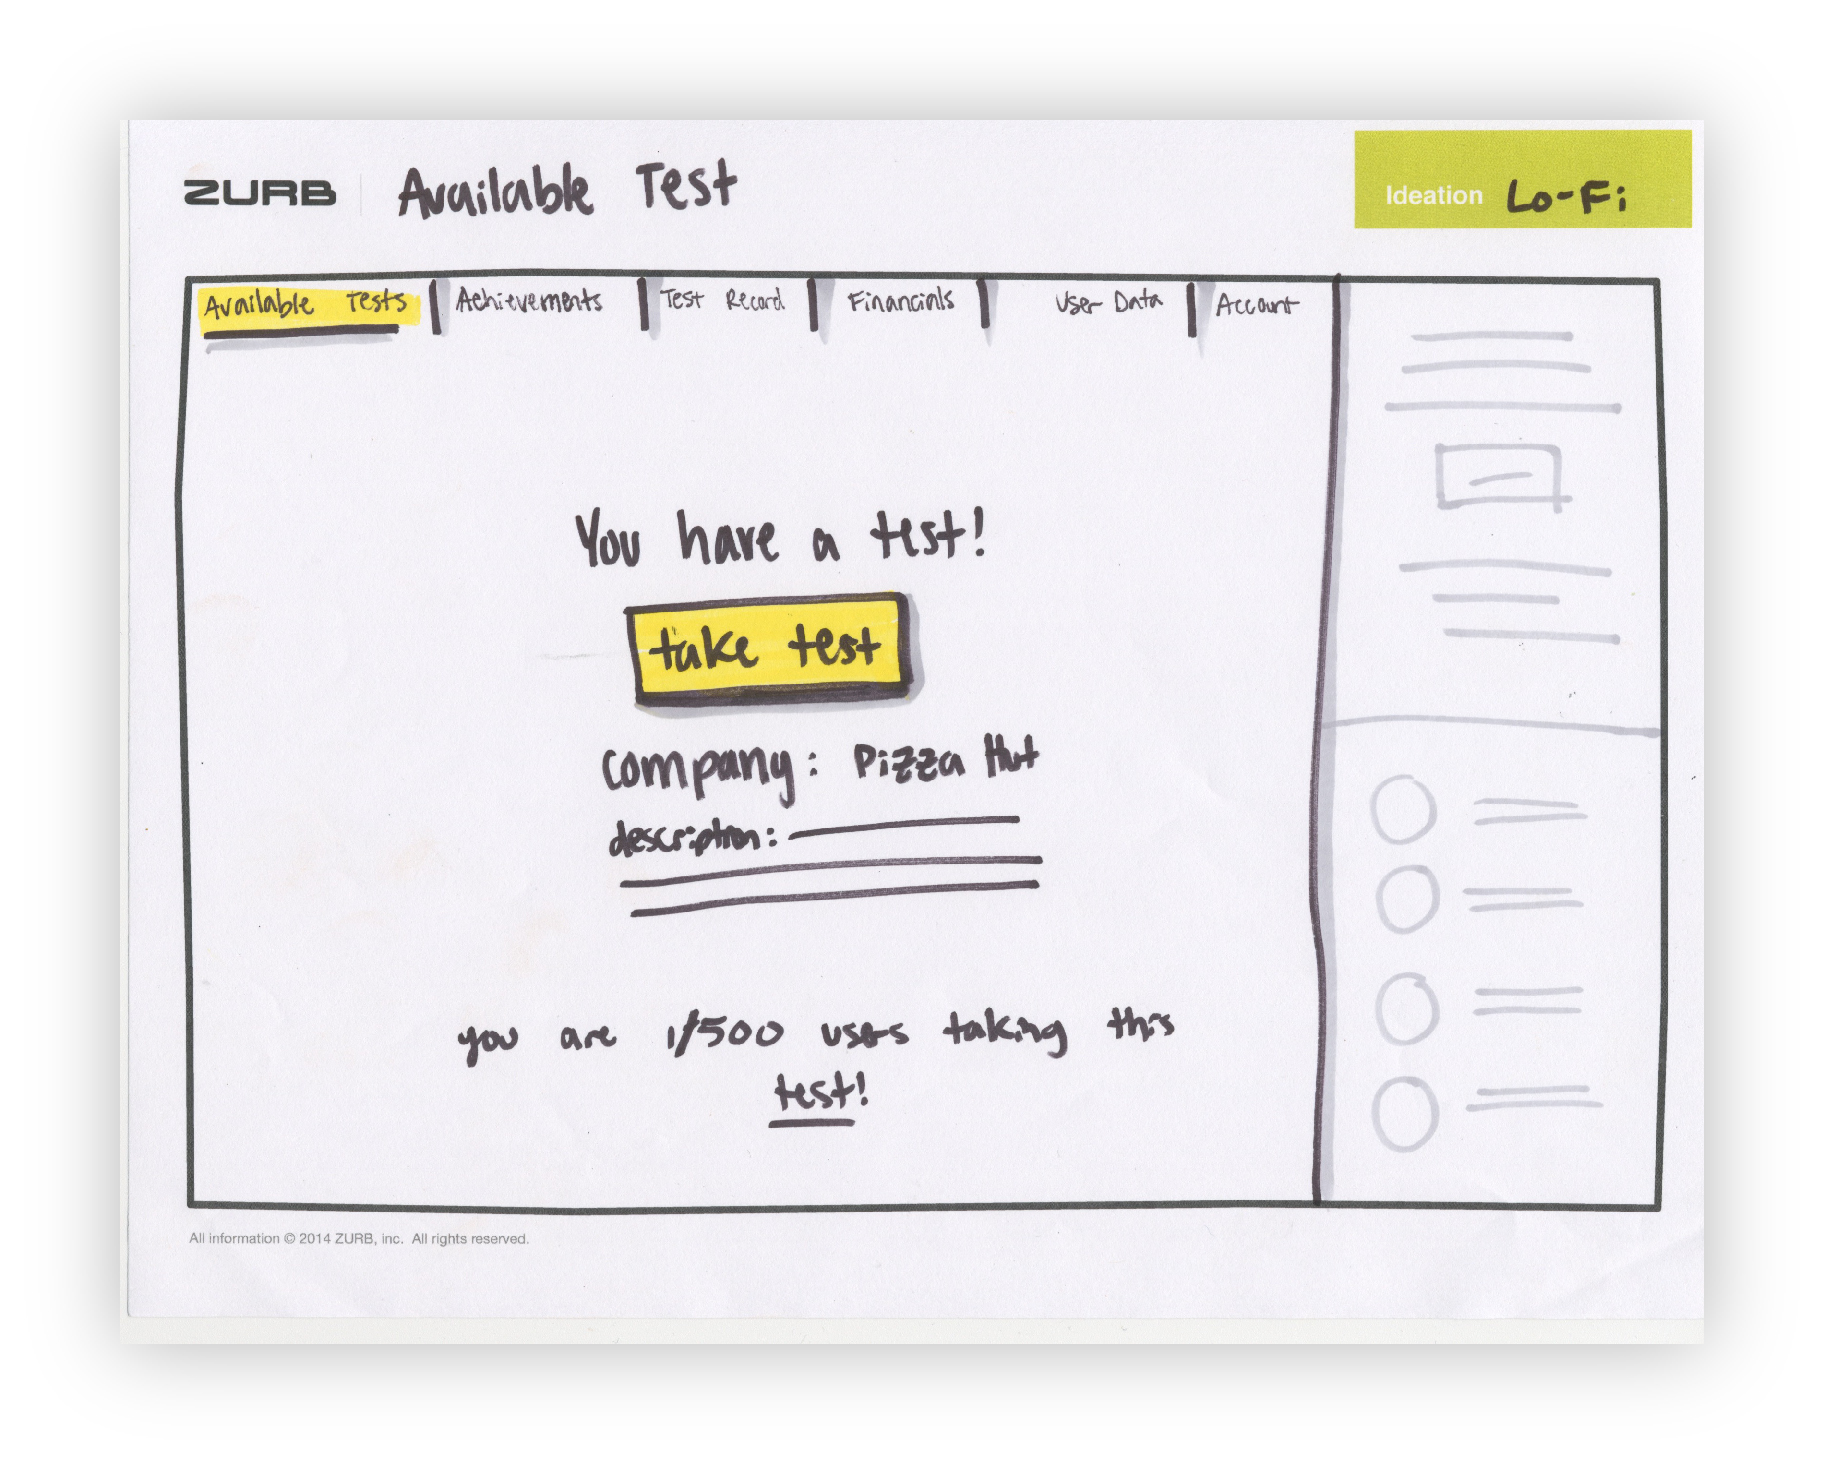 ZURB Available Test
Ideation Lo-Fi
Available Tests Achievements Test Record Financials User Data Account
You have a test!
take test
company: Pizza Hut
description:
you are 1/500 users taking this
test!
All information © 2014 ZURB, inc. All rights reserved.